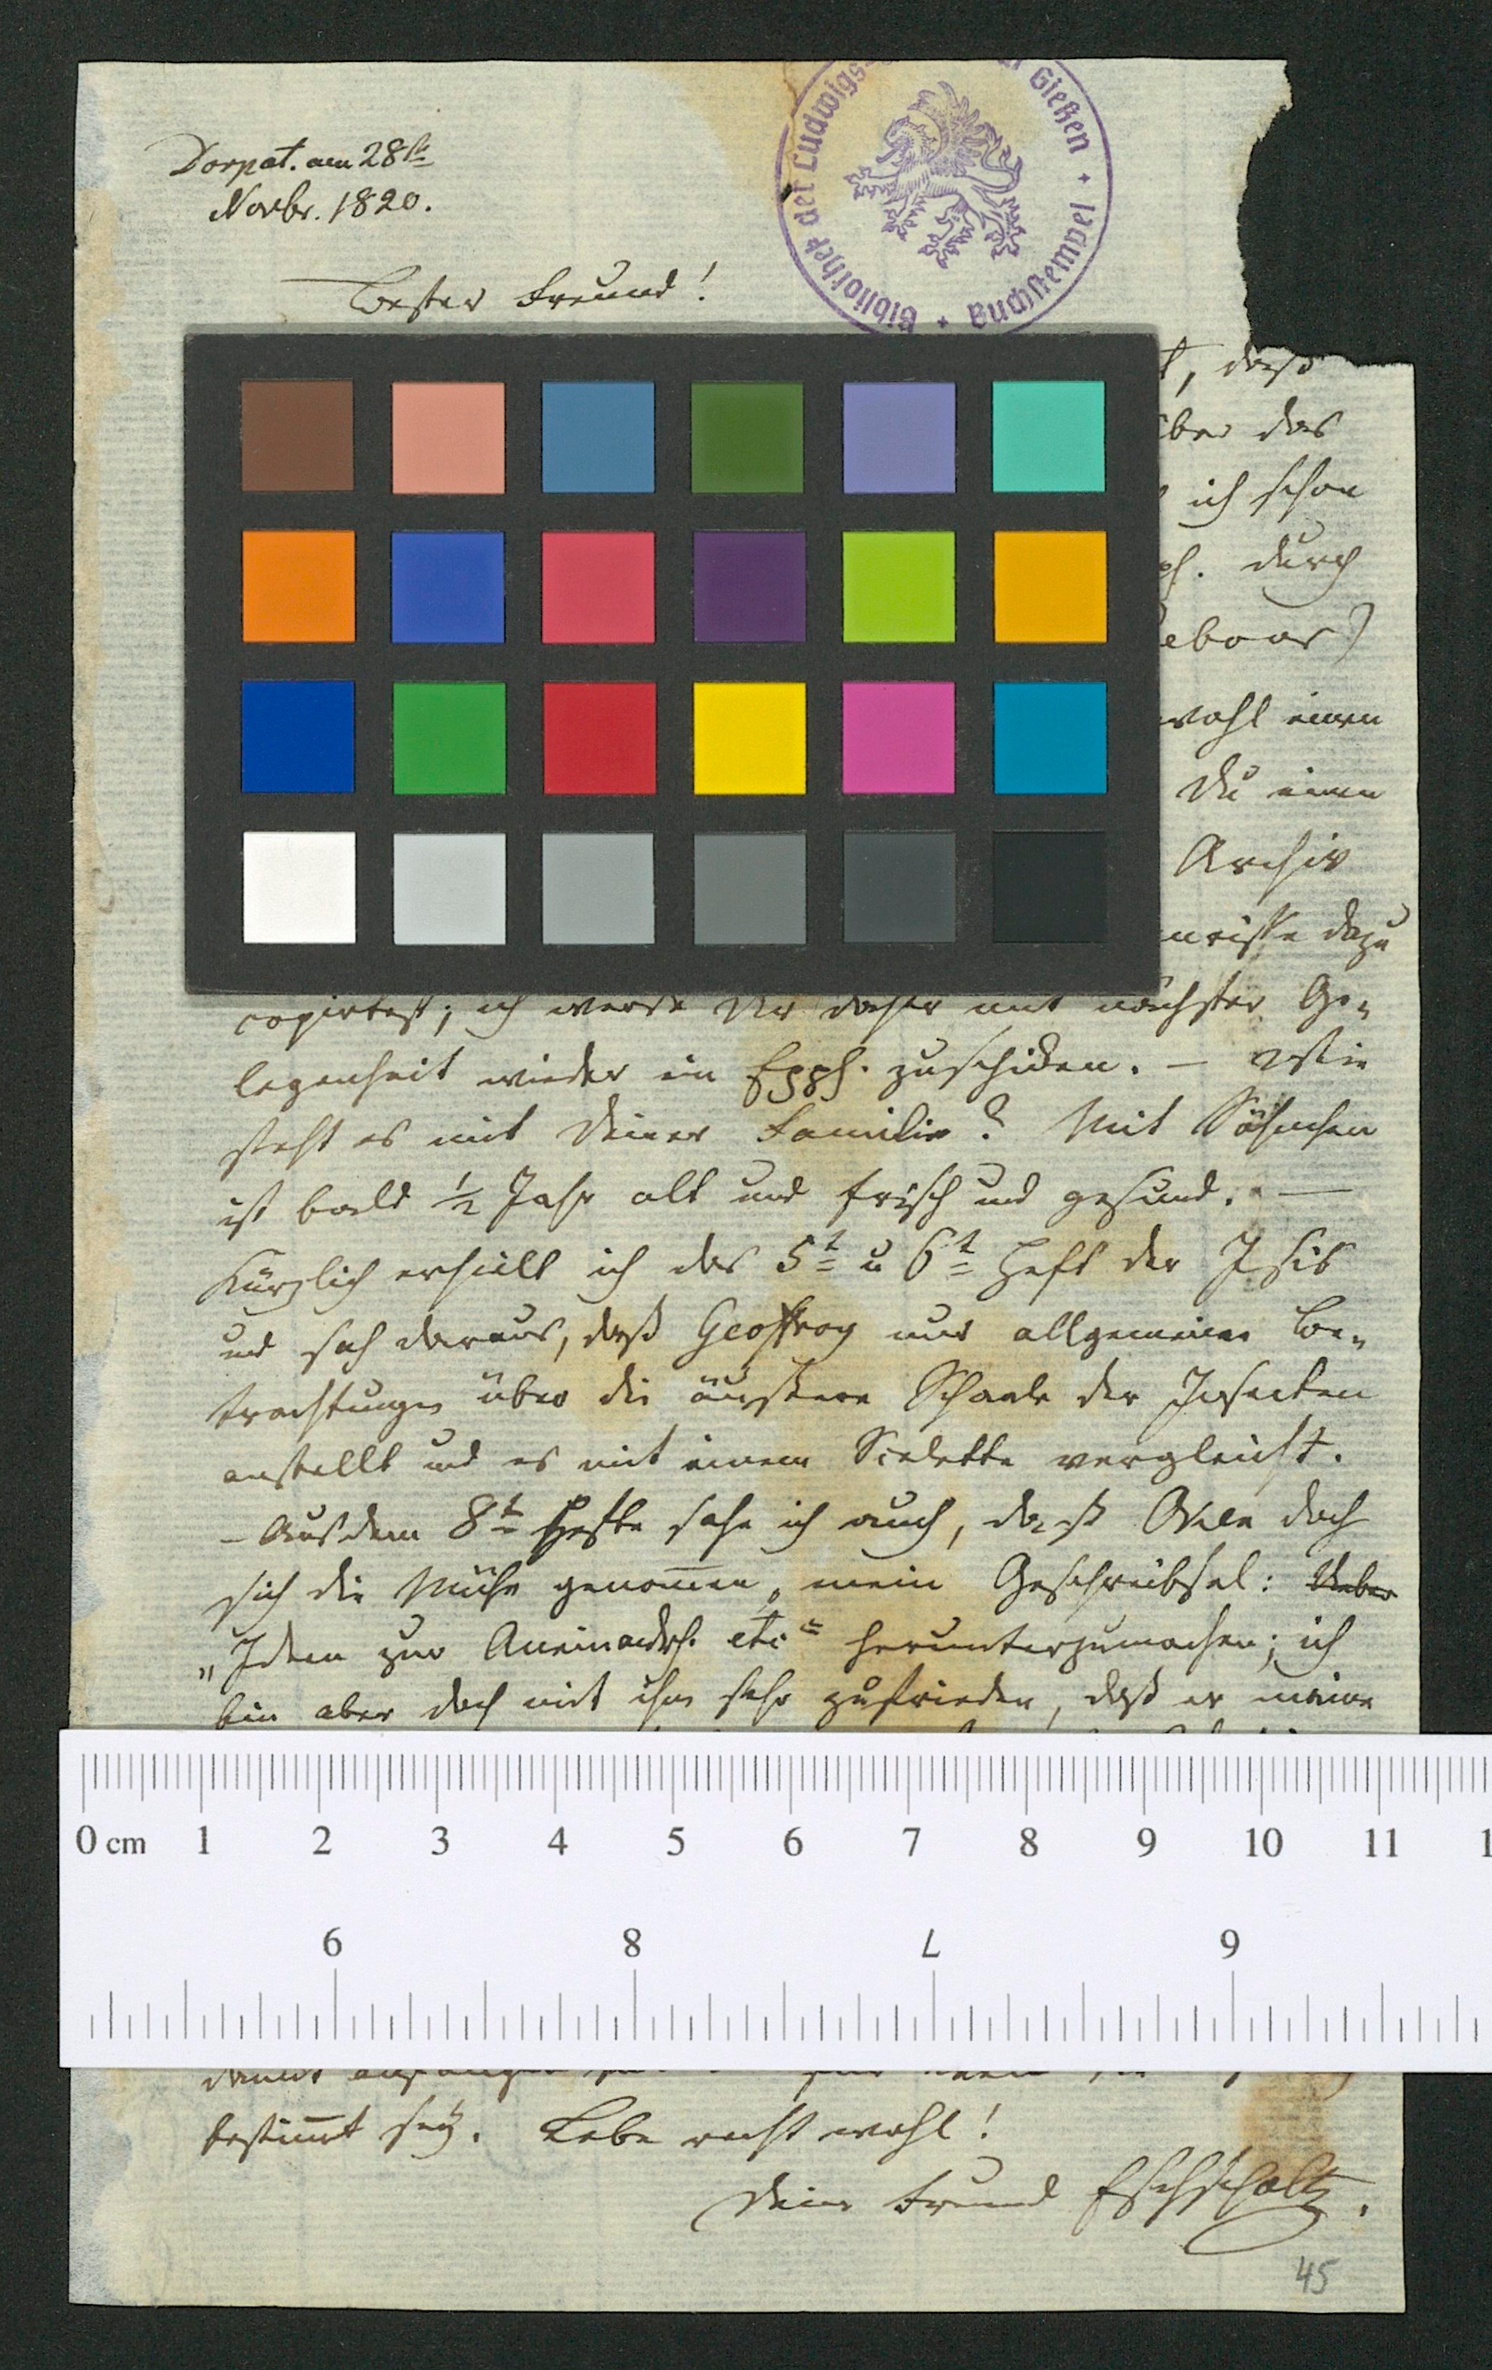 Dorpat. am 28st
Novbr. 1820.
Bibliothek der Ludwigs- Gießen + Buchstempel +
Bester Freund!
t, daß
über das
ich schon
pl. durch
wohl einen
Du einen
Archiv
umrisse dazu
copirtest; ich werde Dir daher mit nächster Ge-
legenheit wieder ein Expl. zuschicken. — Wie
steht es mit Deiner Familie? Mit Söhnchen
ist bald ½ Jahr alt und frisch und gesund. —
Kürzlich erhielt ich das 5t u 6t Heft der Isis
und sah daraus, daß Geoffroy nur allgemeine Be-
trachtungen über die äußere Schaale der Insecten
anstellt und es mit einem Scelette vergleicht.
– Aus dem 8t Hefte sahe ich auch, daß Oken doch
sich die Mühe genommen, mein Geschreibsel: Ueber
„Ideen zur Aneinandrh. etc" herunterzumachen; ich
bin aber doch mit ihm sehr zufrieden, daß er meine
0 cm 1 2 3 4 5 6 7 8 9 10 11 1
9 8 7 6
bestimmt sey. Lebe recht wohl!
Dein Freund Eschscholtz.
45